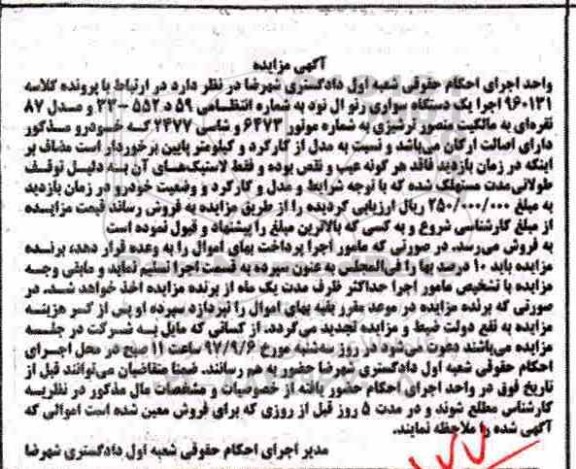 آگهی مزایده
واحد اجرای احکام حقوقی شعبه اول دادگستری شهرضا در نظر دارد در ارتباط با پرونده کلاسه
۹۶۰۱۳۱ اجرا یک دستگاه سواری رنو ال نود به شماره انتظامی ۵۹ د ۵۵۲ - ۲۳ و مدل ۸۷
نقره‌ای به مالکیت منصور ترشیزی به شماره موتور ۶۴۷۳ و شاسی ۲۴۷۷ که خودرو مذکور
دارای اصالت ارکان می‌باشد و نسبت به مدل از کارکرد و کیلومتر پایین برخوردار است مضاف بر
اینکه در زمان بازدید فاقد هر گونه عیب و نقص بوده و فقط لاستیک‌های آن به دلیل توقف
طولانی‌مدت مستهلک شده که با توجه شرایط و مدل و کارکرد و وضعیت خودرو در زمان بازدید
به مبلغ ۲۵۰/۰۰۰/۰۰۰ ریال ارزیابی گردیده را از طریق مزایده به فروش رساند قیمت مزایده
از مبلغ کارشناسی شروع و به کسی که بالاترین مبلغ را پیشنهاد و قبول نموده است
به فروش می‌رسد. در صورتی که مامور اجرا پرداخت بهای اموال را به وعده قرار دهد، برنده
مزایده باید ۱۰ درصد بها را فی‌المجلس به عنون سپرده به قسمت اجرا تسلیم نماید و مابقی وجه
مزایده با تشخیص مامور اجرا حداکثر ظرف مدت یک ماه از برنده مزایده اخذ خواهد شد. در
صورتی که برنده مزایده در موعد مقرر بقیه بهای اموال را نپردازد سپرده او پس از کسر هزینه
مزایده به نفع دولت ضبط و مزایده تجدید می‌گردد. از کسانی که مایل به شرکت در جلسه
مزایده می‌باشند دعوت می‌شود در روز سه‌شنبه مورخ ۹۷/۹/۶ ساعت ۱۱ صبح در محل اجرای
احکام حقوقی شعبه اول دادگستری شهرضا حضور به هم رسانند. ضمنا متقاضیان می‌توانند قبل از
تاریخ فوق در واحد اجرای احکام حضور یافته از خصوصیات و مشخصات مال مذکور در نظریه
کارشناس مطلع شوند و در مدت ۵ روز قبل از روزی که برای فروش معین شده است اموالی که
آگهی شده را ملاحظه نمایند.
مدیر اجرای احکام حقوقی شعبه اول دادگستری شهرضا